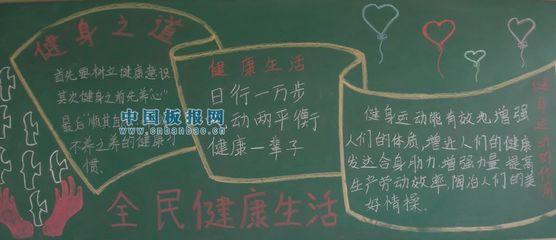 健身之道
首先要树立健康意识
其次健身之前先养心"
最后"顺其自
不养之养的健康习
惯。
健康生活
日行一万步
动两平衡
健康一辈子
健身运动能有效地增强
人们的体质,增进人们的健康
发达合身肋力,增强力量,提高
生产劳动效率,陶冶人们的美
好情操。
全民健康生活
中国板报网
www.cnbanbao.cn